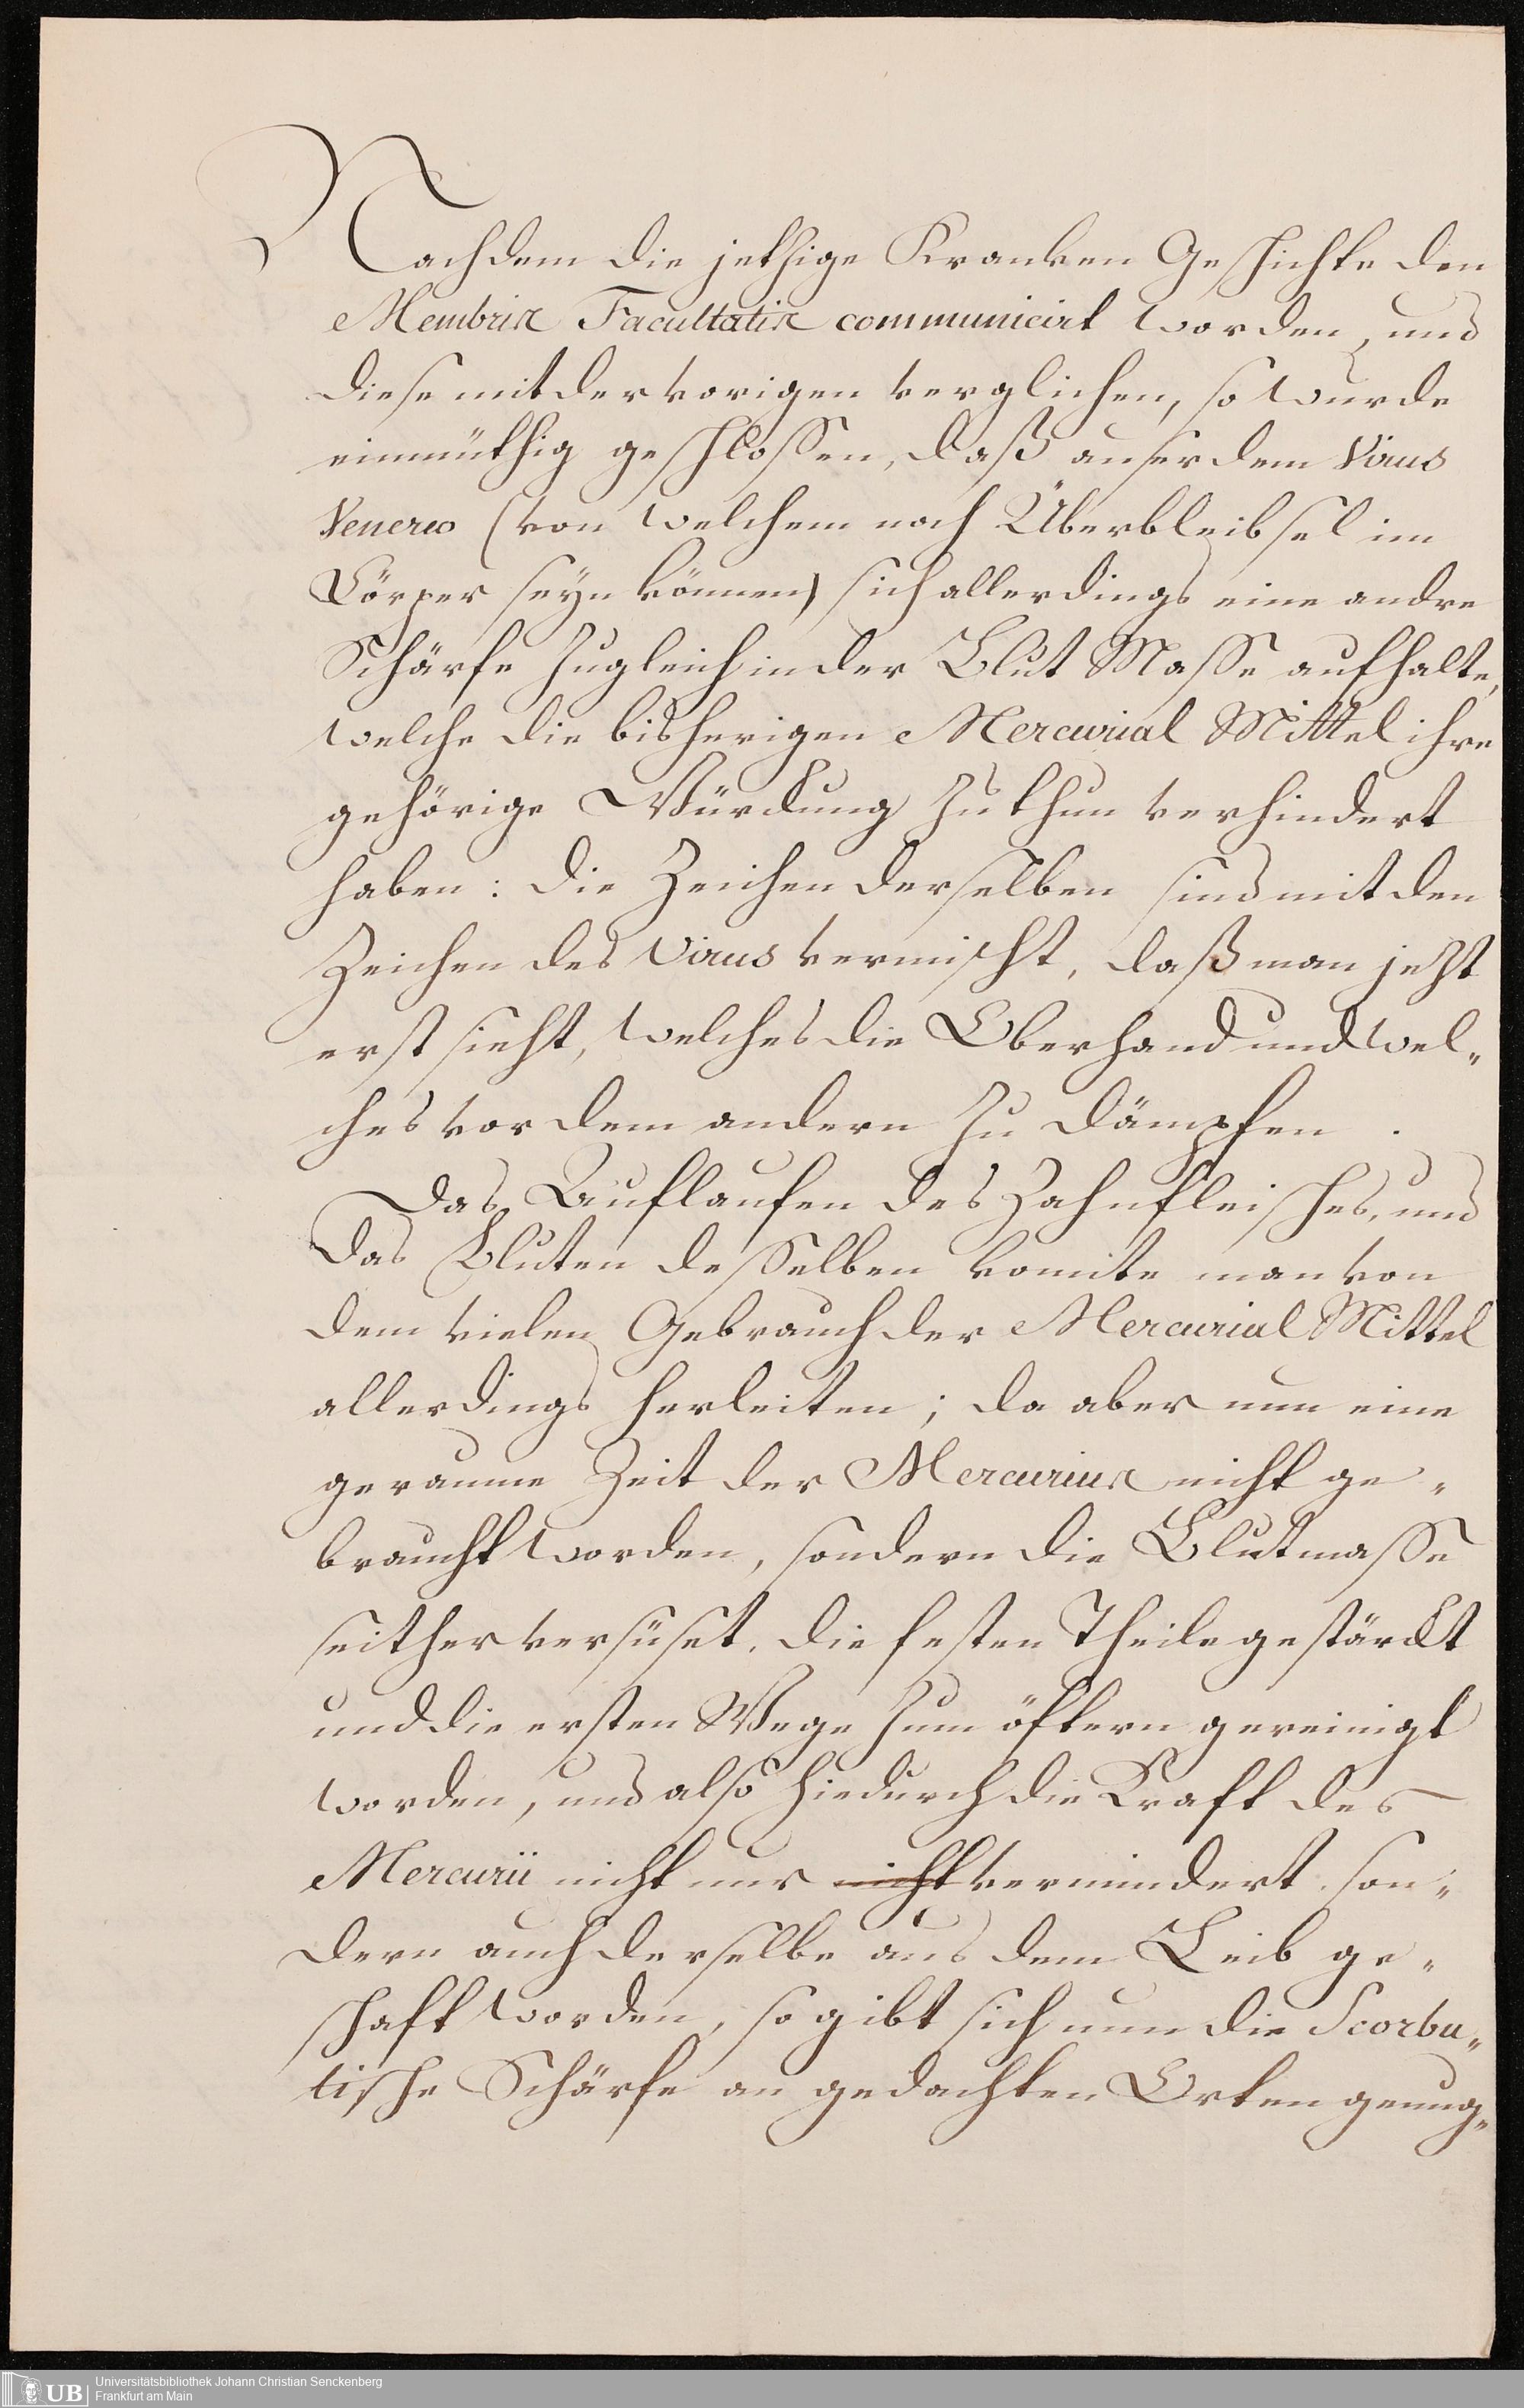 Nachdem die jethige Kranken Geschichte den
Membris Facultatis communicirt worden, und
diese mit der vorigen verglichen, so wurde
einmüthig geschlossen, daß auser dem Virus
Venereo (von welchem noch Überbleibsel im
Cörper seyn können) sich allerdings eine andre
Schärfe zugleich in der Blut Masse aufhalte,
welche die bisherigen Mercurial Mittel ihre
gehörige Würckung zu thun verhindert
haben: die Zeichen derselben sind mit den
Zeichen des Virus vermischt, daß man jezt
erst sieht, welches die Oberhand und wel„
ches vor dem andern zu dämpfen.
Das Auflaufen des Zahnfleisches, und
das Bluten desselben konnte man von
dem vielen Gebrauch der Mercurial Mittel
allerdings herleiten; da aber nun eine
geraume Zeit der Mercurius nicht ge„
braucht worden, sondern die Blutmasse
seither versüset, die festen Theile gestärckt
und die ersten Wege zum öftern gereinigt
worden, und also hiedurch die Kraft des
Mercurii nicht nur nicht vermindert, son„
dern auch derselbe aus dem Leib ge„
schaft worden, so gibt sich nun die Scorbu„
tische Schärfe an gedachten Orten genug„
UB
Universitätsbibliothek Johann Christian Senckenberg
Frankfurt am Main